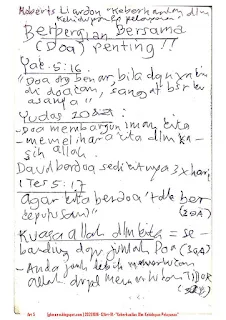 Roberts Liardon "Keberhasilan dlm
Kehidupan & pelayanan"
Berpergian Bersama
(Doa) Penting!!
Yak. 5:16.
"Doa org benar bila dgn yakin
di doakan, sangat besar
kuasanya"
Yudas 20
-Doa membangun iman kita
-memelihara kita dlm ka-
sih allah.
Daud berdoa sedikitnya 3x hari
1 Tes 5:17
Agar kita berdoa "tdk ber
keputusan"
Kuasa allah dlm kita = se-
banding dgn jumlah Doa
-Anda jauh lebih memerlukan
allah drpd memerlukan TIDUR